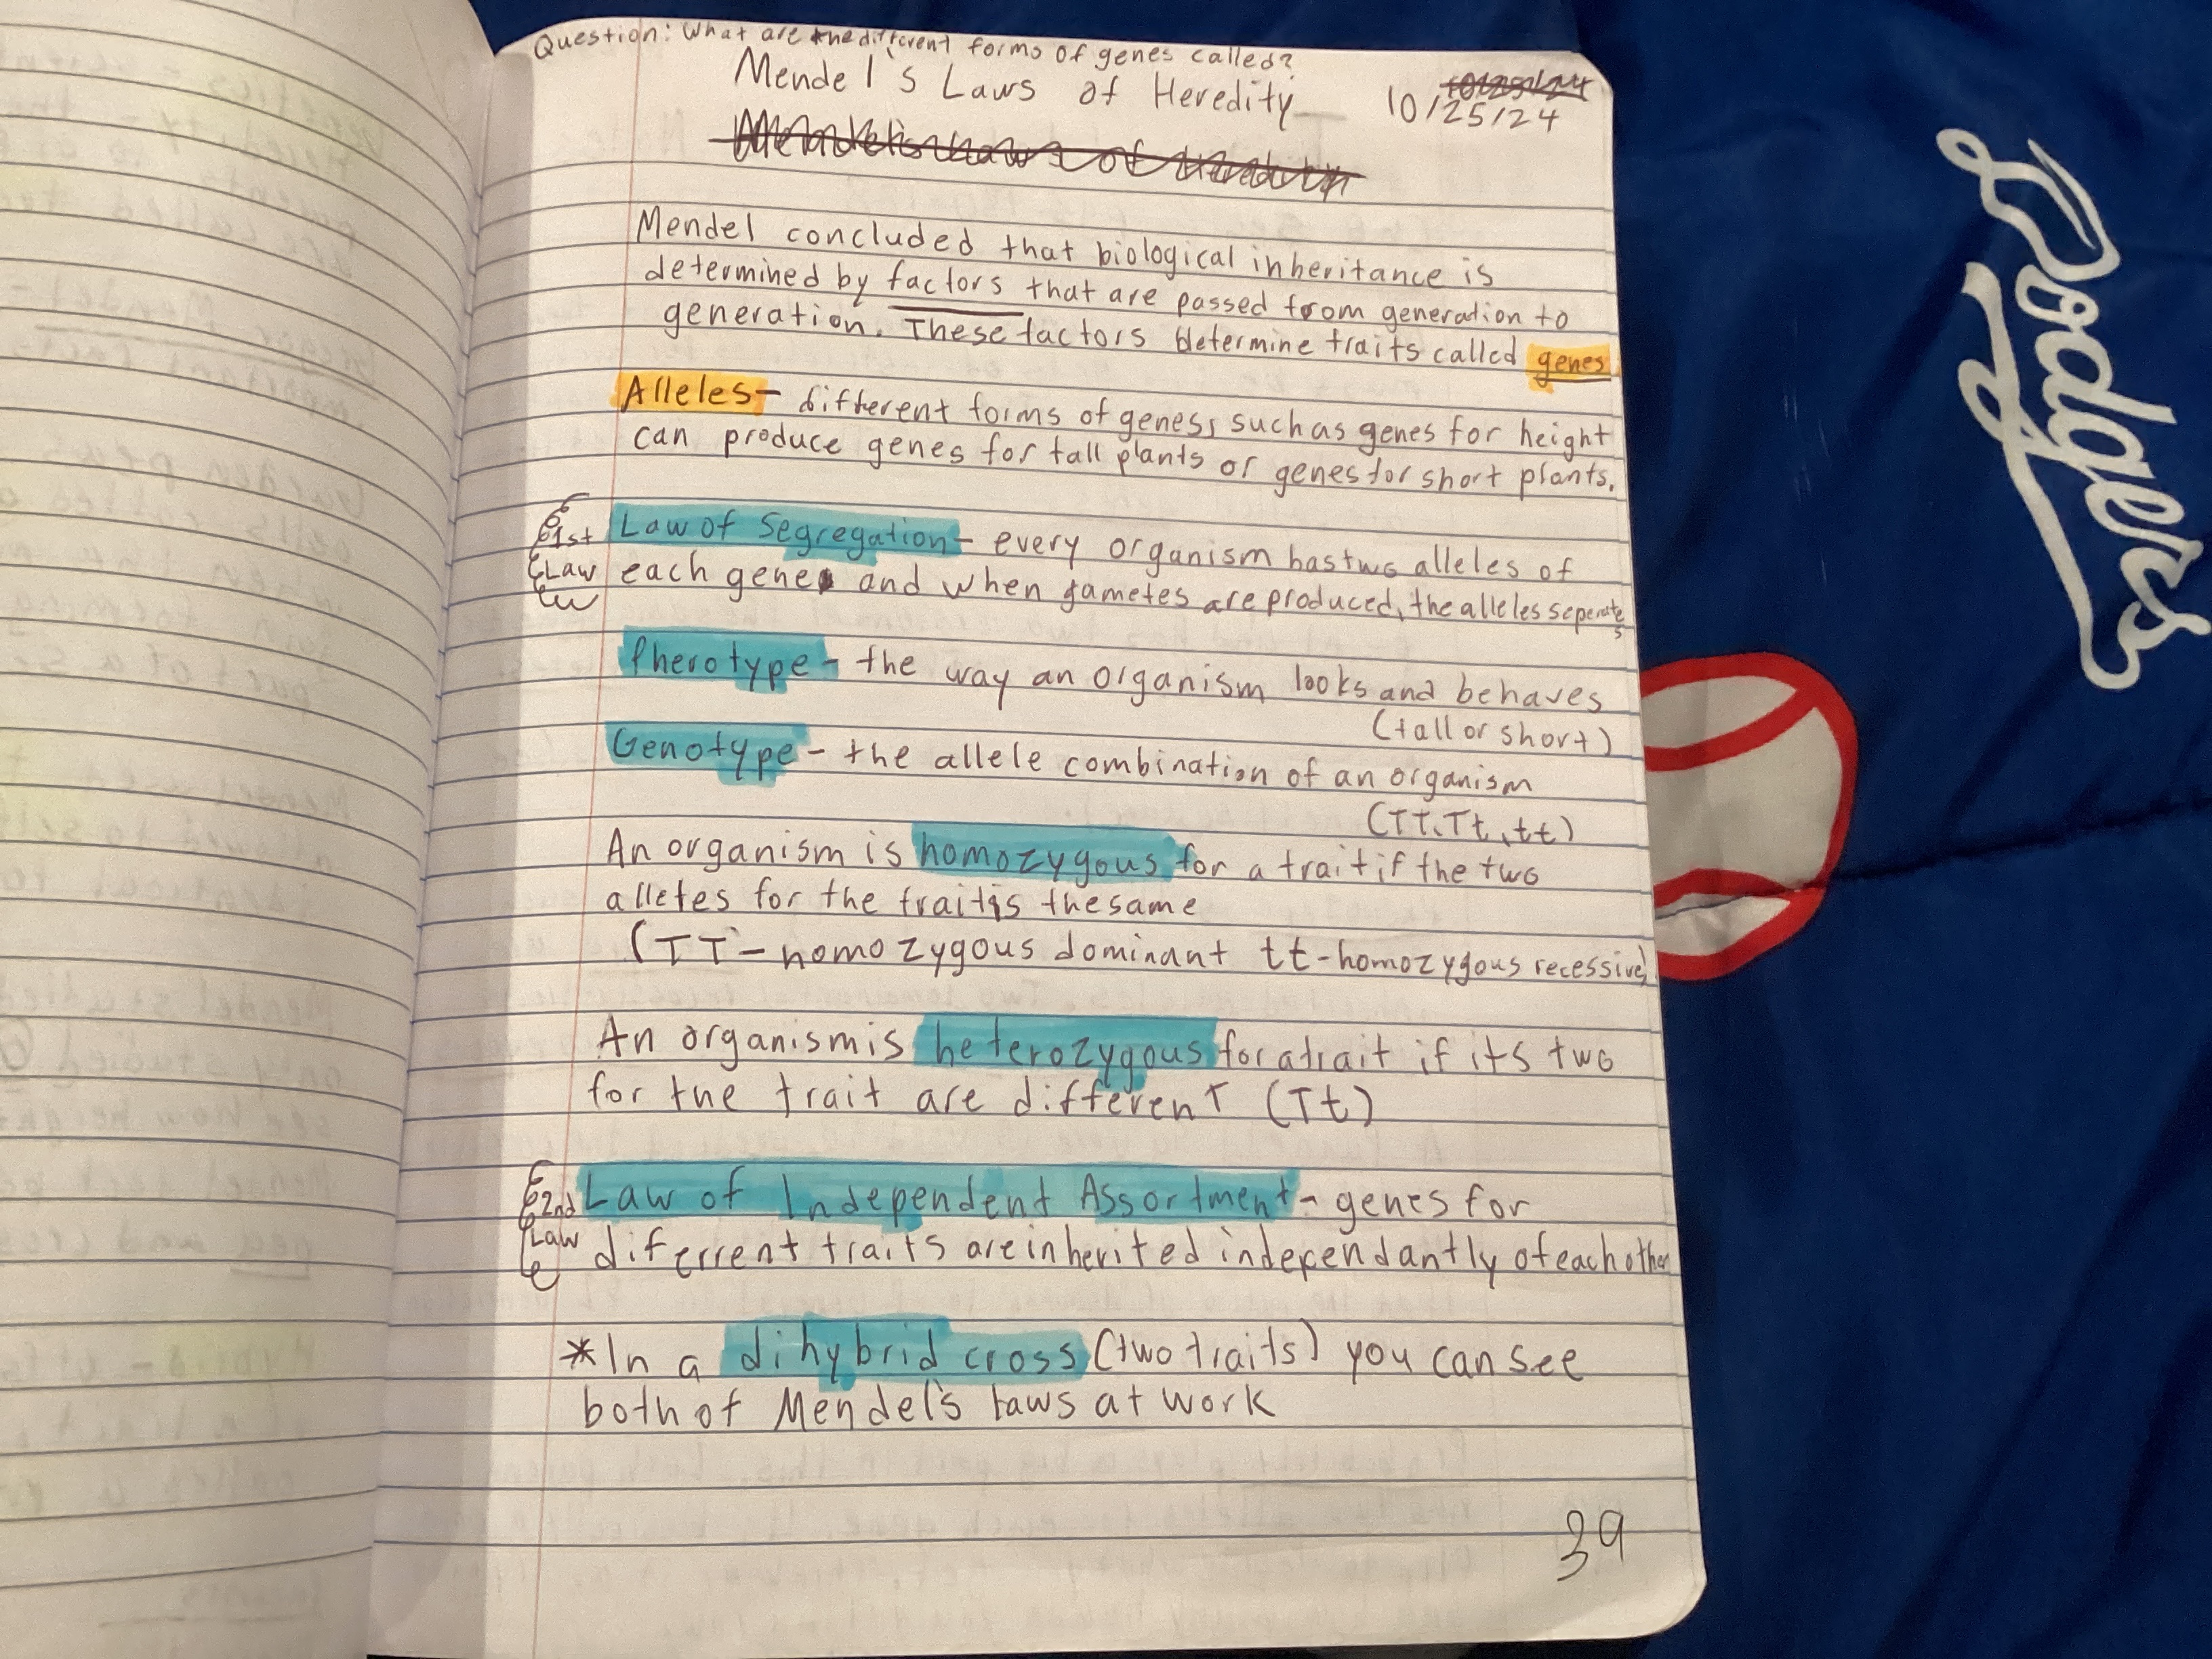 Question: What are the different forms of genes called?
Mendel's Laws of Heredity
10/25/24
Mendel concluded that biological inheritance is
determined by factors that are passed from generation to
generation. These factors determine traits called genes
Alleles- different forms of genes, such as genes for height
can produce genes for tall plants or genes for short plants.
1st Law of Segregation- every organism has two alleles of
Law each gene and when gametes are produced, the alleles seperates
Pherotype- the way an organism looks and behaves
(tall or short)
Genotype- the allele combination of an organism
(TT, Tt, tt)
An organism is homozygous for a trait if the two
alleles for the trait is the same
(TT-homozygous dominant tt-homozygous recessive)
An organism is heterozygous for a trait if its two
for the trait are different (Tt)
2nd Law of Independent Assortment- genes for
Law diferrent traits are inherited independantly of each other
*In a dihybrid cross (two traits) you can see
both of Mendel's Laws at work
39
Dodgers